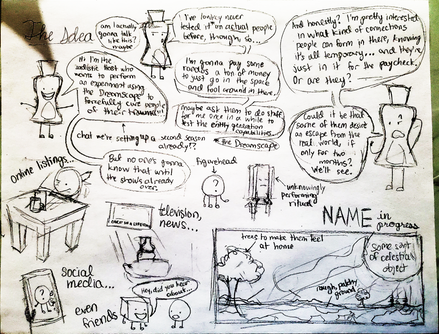 The Idea
am I actually
gonna talk
like this?
maybe
Hi I'm the
sadistic host who
wants to perform
an experiment using
the Dreamscape to
forcefully cure people
of their trauma!!!
I've lowkey never
tested it on actual people
before, though, so...
I'm gonna pay some
randos a ton of money
to just go in the space
and fool around in there.
maybe ask them to do stuff
for me once in a while to
test the entity generation
capabilities.
the Dreamscape
chat we're setting up a second season
already!?
But no one's gonna
know that until
the show's already
over.
And honestly? I'm pretty interested
in what kind of connections
people can form in there, knowing
it's all temporary... and they're
just in it for the paycheck.
Or are they?
Could it be that
some of them desire
an escape from the
real world, if
only for two
months?
We'll see.
online listings...
figurehead
?
unknowingly
performing
ritual
television,
news...
social
media...
even
friends
Hey, did you hear
about...
NAME in
progress
trees to make them feel
at home
Some sort
of celestial
object
rough, pebbly
ground